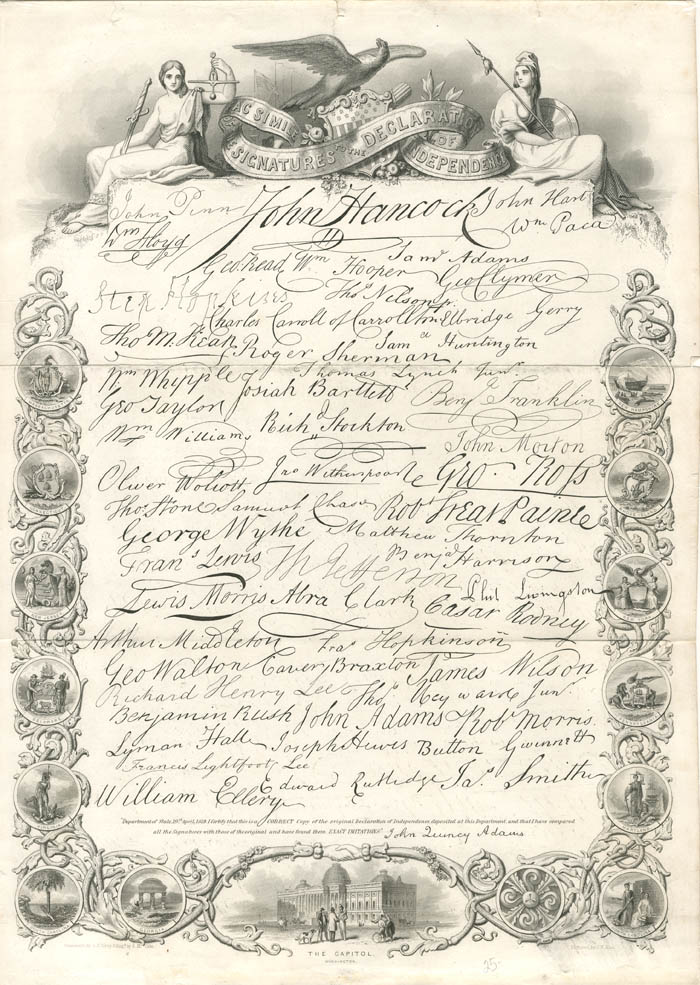 FAC SIMILE
OF THE
SIGNATURES TO THE DECLARATION OF INDEPENDENCE
John Penn John Hancock John Hart
Wm Floyd Wm Paca
Geo Read Wm Hooper Saml Adams
Geo Clymer
Step Hopkins Thos Nelson jr.
Charles Carroll of Carrollton Elbridge Gerry
Tho M:Kean Roger Sherman Saml Huntington
Wm Whipple Josiah Bartlett Thomas Lynch Junr.
Geo Taylor Benj Franklin
Wm Williams Richd Stockton John Morton
Oliver Wolcott Jno Witherspoon Geo. Ross
Thos Stone Samuel Chase Robt Treat Paine
George Wythe Matthew Thornton
Frans Lewis Th Jefferson Benja Harrison
Lewis Morris Abra Clark Phil Livingston
Cæsar Rodney
Arthur Middleton Fras Hopkinson
Geo Walton Carter Braxton James Wilson
Richard Henry Lee Thos Heyward Junr.
Benjamin Rush John Adams Robt Morris
Lyman Hall Joseph Hewes Button Gwinnett
Francis Lightfoot Lee
William Ellery Edward Rutledge Jas Smith
"Department of State, 19th April, 1819 I Certify that this is a CORRECT Copy of the original Declaration of Independence deposited at this Department, and that I have compared
all the Signatures with those of the original and have found them EXACT IMITATIONS." John Quincy Adams
THE CAPITOL.
WASHINGTON.
25-